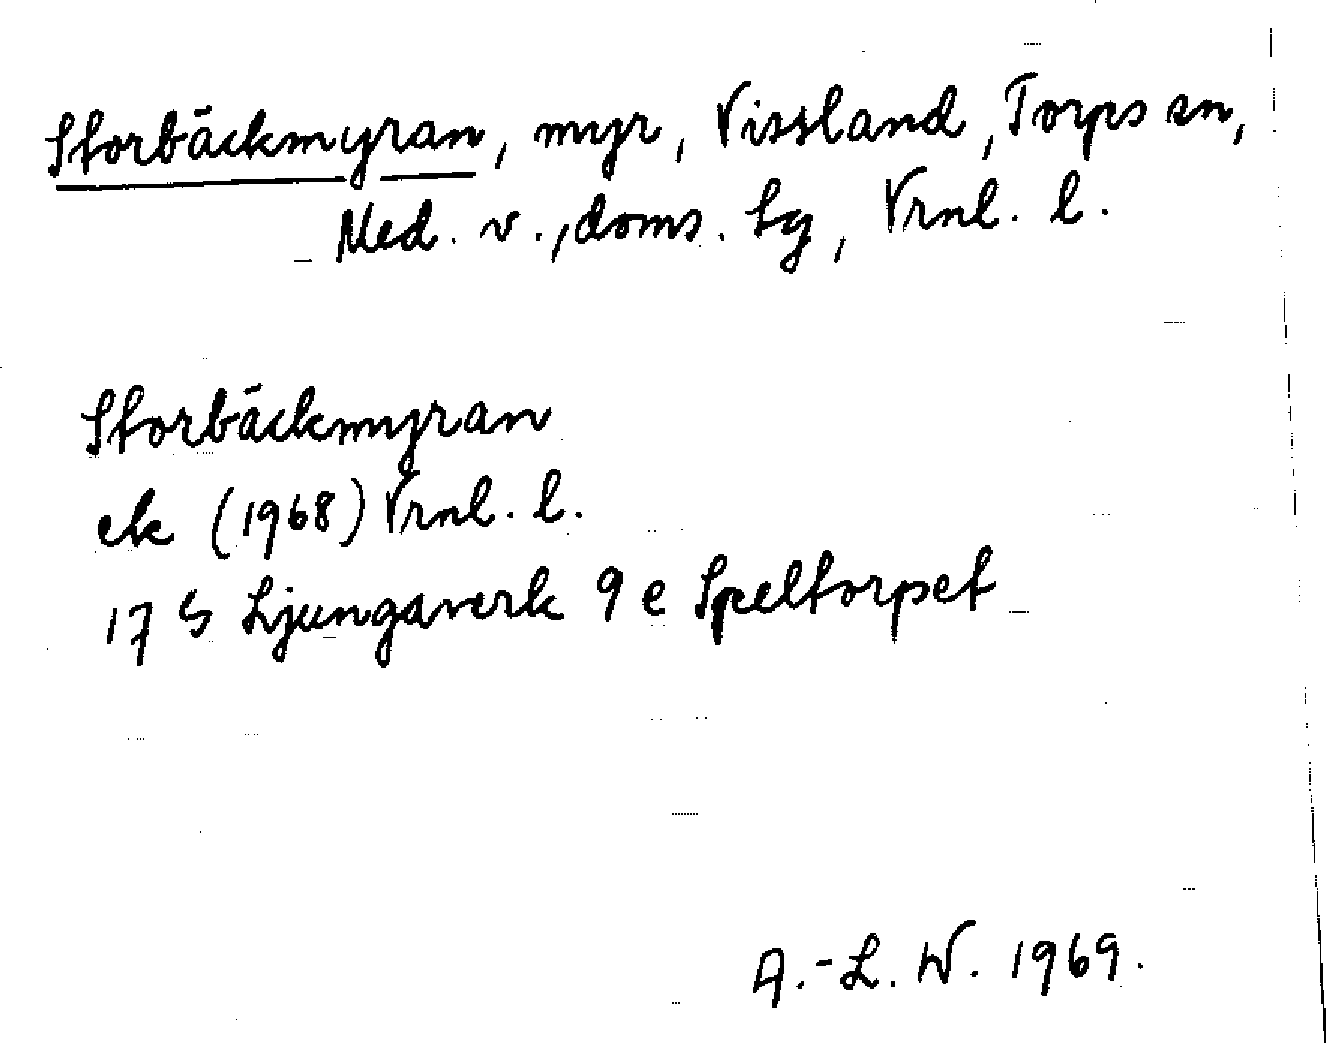 Storbäckmyran, myr, Vissland, Torps sn,
Med. v., doms. lg, Vrnl. l.
Storbäckmyran
ek (1968) Vrnl. l.
17 G Ljungaverk 9 e Speltorpet
A.-L. W. 1969.